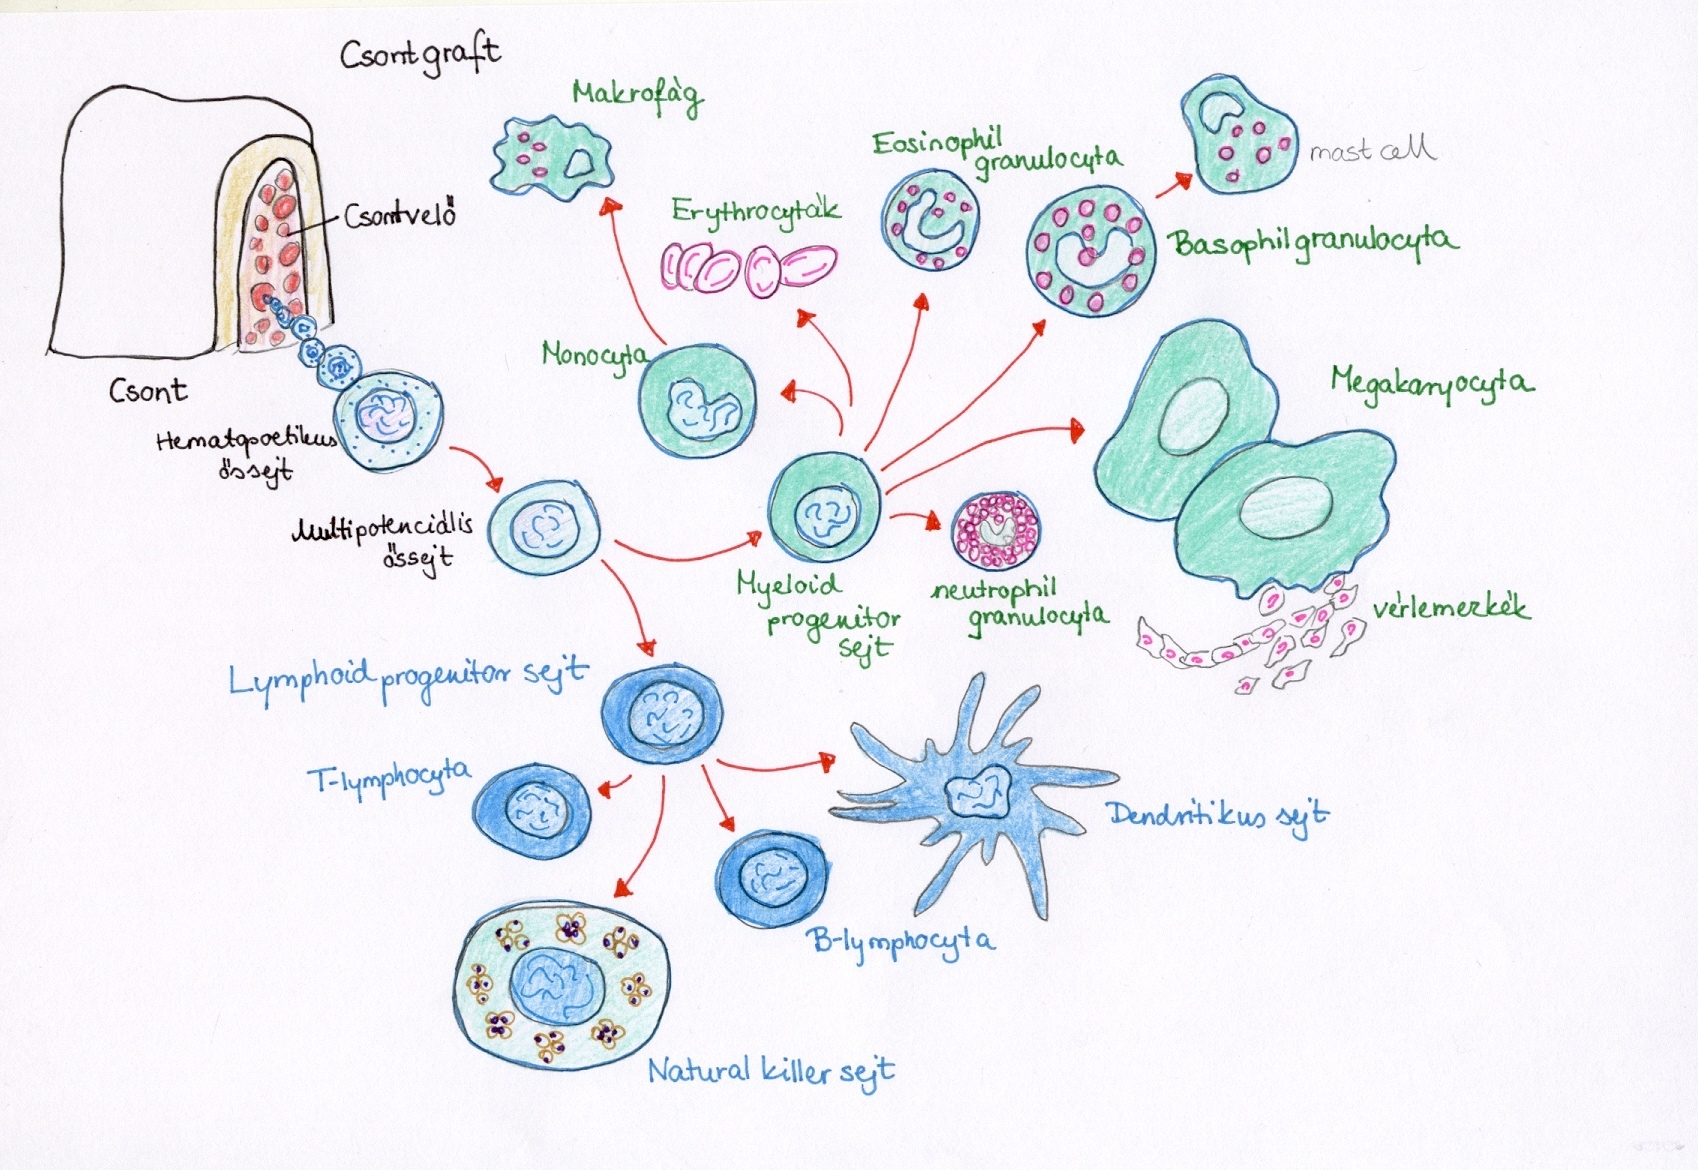 Csontgraft
Makrofág
Eosinophil
granulocyta
mast cell
Csontvelő
Erythrocyták
Basophil granulocyta
Monocyta
Csont
Megakaryocyta
Hematopoetikus
őssejt
Multipotenciális
őssejt
Myeloid
progenitor
sejt
neutrophil
granulocyta
vérlemezkék
Lymphoid progenitor sejt
T-lymphocyta
Dendritikus sejt
B-lymphocyta
Natural killer sejt